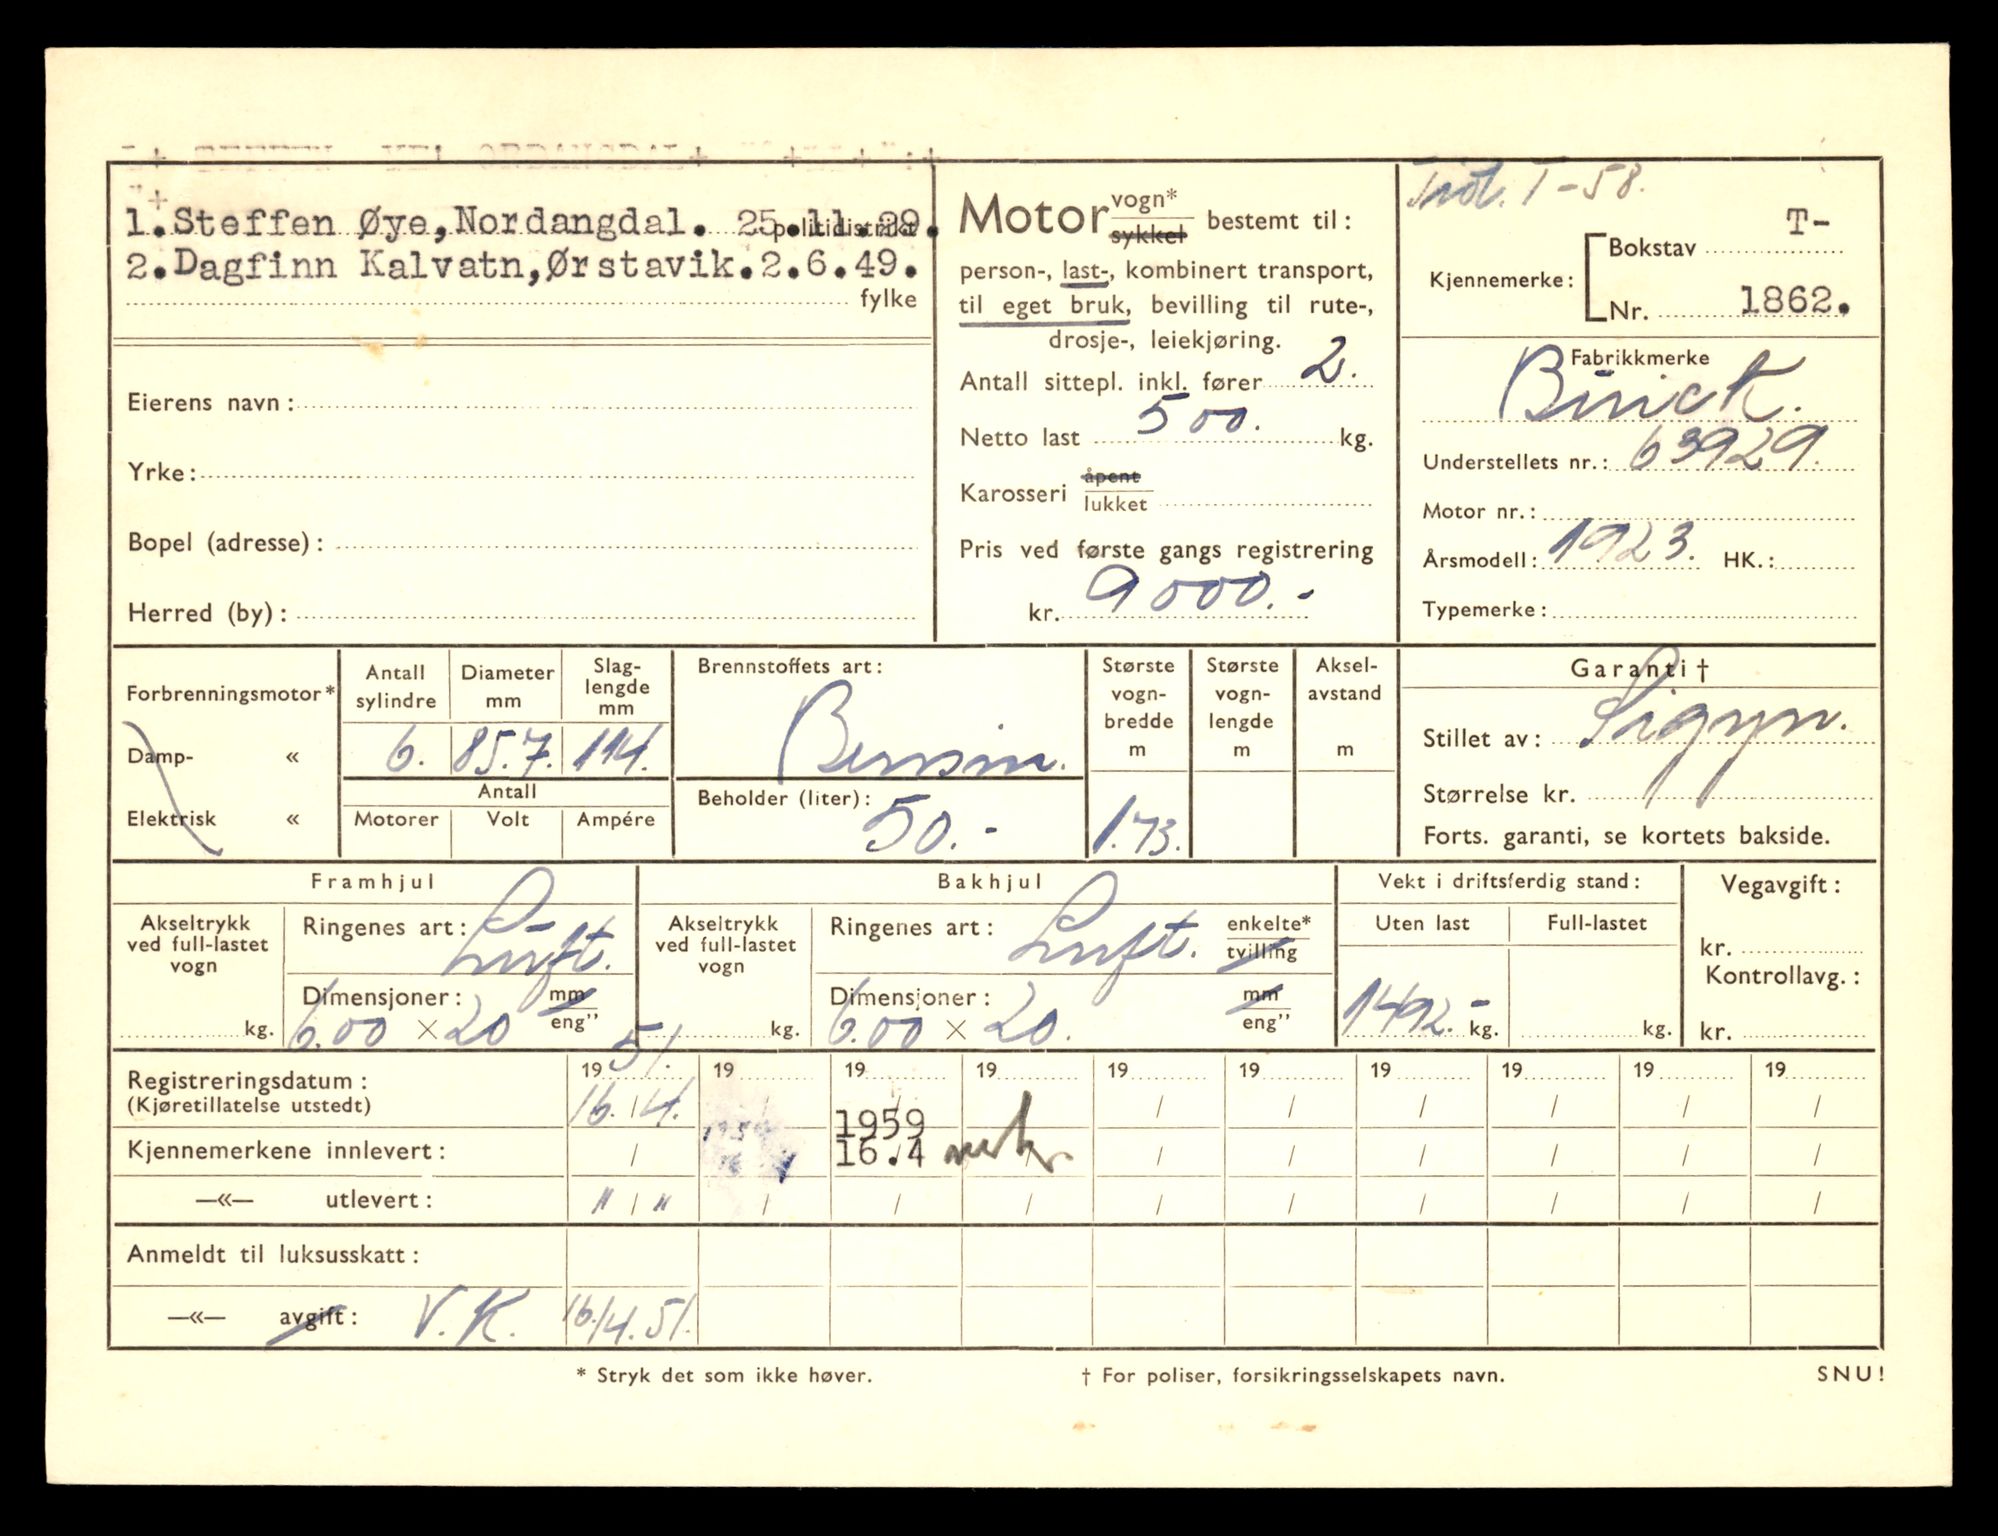 1.Steffen Øye,Nordangdal. 25.11.29. politidistrikt
2.Dagfinn Kalvatn,Ørstavik.2.6.49.
fylke
Eierens navn:
Yrke:
Bopel (adresse):
Herred (by):
Motor vogn* sykkel bestemt til:
person-, last-, kombinert transport,
til eget bruk, bevilling til rute-,
drosje-, leiekjøring.
Antall sittepl. inkl. fører 2.
Netto last 500. kg.
Karosseri åpent lukket
Pris ved første gangs registrering
kr. 9000.-
T-58.
Kjennemerke: Bokstav T-
Nr. 1862.
Fabrikkmerke
Buick.
Understellets nr.: 63929.
Motor nr.:
Årsmodell: 1923. HK.:
Typemerke:
Forbrenningsmotor*
Damp- «
Elektrisk «
Antall sylindre
6.
Diameter mm
85.7.
Slag-lengde mm
114.
Antall
Motorer Volt Ampére
Brennstoffets art:
Bensin.
Beholder (liter):
50.-
Største vogn-bredde m
1.73.
Største vogn-lengde m
Aksel-avstand m
Garanti †
Stillet av: Sigyn.
Størrelse kr.
Forts. garanti, se kortets bakside.
Framhjul
Akseltrykk ved full-lastet vogn
kg.
Ringenes art: Luft.
Dimensjoner: mm eng’’
6.00 × 20
Bakhjul
Akseltrykk ved full-lastet vogn
kg.
Ringenes art: Luft. enkelte* tvilling
Dimensjoner: mm eng’’
6.00 × 20.
Vekt i driftsferdig stand:
Uten last Full-lastet
1492.- kg. kg.
Vegavgift:
kr.
Kontrollavg.:
kr.
Registreringsdatum: 1951. 19 19 19 19 19 19 19 19 19
(Kjøretillatelse utstedt) 16./4. / / / / / / / / /
1959
Kjennemerkene innlevert: / 16.4 / / / / / / /
—«— utlevert: " / " / / / / / / / / /
Anmeldt til luksusskatt:
—«— avgift: V.K. 16/4.51.
* Stryk det som ikke høver.
† For poliser, forsikringsselskapets navn.
SNU!